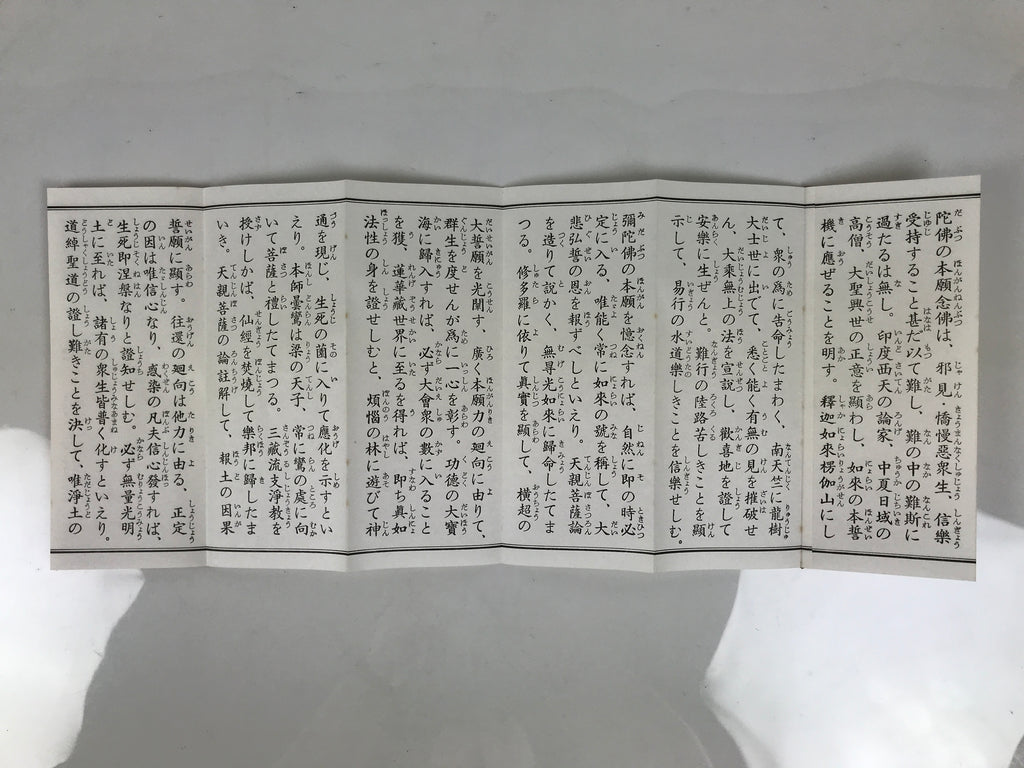 陀佛の本願念佛は、邪見・憍慢惡衆生、信樂
受持すること甚だ以て難し、難の中の難斯に
過たるは無し。印度西天の論家、中夏日域の
高僧、大聖興世の正意を顯わし、如來の本誓
機に應ぜることを明す。釋迦如來楞伽山にし
て、衆の爲に告命したまわく、南天竺に龍樹
大士世に出でて、悉く能く有無の見を摧破せ
ん、大乘無上の法を宣說し、歡喜地を證して
安樂に生ぜんと。難行の陸路苦しきことを顯
示して、易行の水道樂しきことを信樂せしむ。
彌陀佛の本願を憶念すれば、自然に即の時必
定にいる、唯能く常に如來の號を稱して、大
悲弘誓の恩を報ずべしといえり。天親菩薩論
を造りて說かく、無㝵光如來に歸命したてま
つる。修多羅に依りて眞實を顯して、橫超の
大誓願を光闡す、廣く本願力の廻向に由りて、
群生を度せんが爲に一心を彰す。功德の大寶
海に歸入すれば、必ず大會衆の數に入ること
を獲、蓮華藏世界に至るを得れば、即ち眞如
法性の身を證せしむと、煩惱の林に遊びて神
通を現じ、生死の薗に入りて應化を示すとい
えり。本師曇鸞は梁の天子、常に鸞の處に向
いて菩薩と禮したてまつる。三藏流支淨敎を
授けしかば、仙經を焚燒して樂邦に歸したま
いき。天親菩薩の論註解して、報土の因果
誓願に顯す。往還の廻向は他力に由る、正定
の因は唯信心なり、惑染の凡夫信心發すれば、
生死即涅槃なりと證知せしむ。必ず無量光明
土に至れば、諸有の衆生皆普く化すといえり。
道綽聖道の證し難きことを決して、唯淨土の